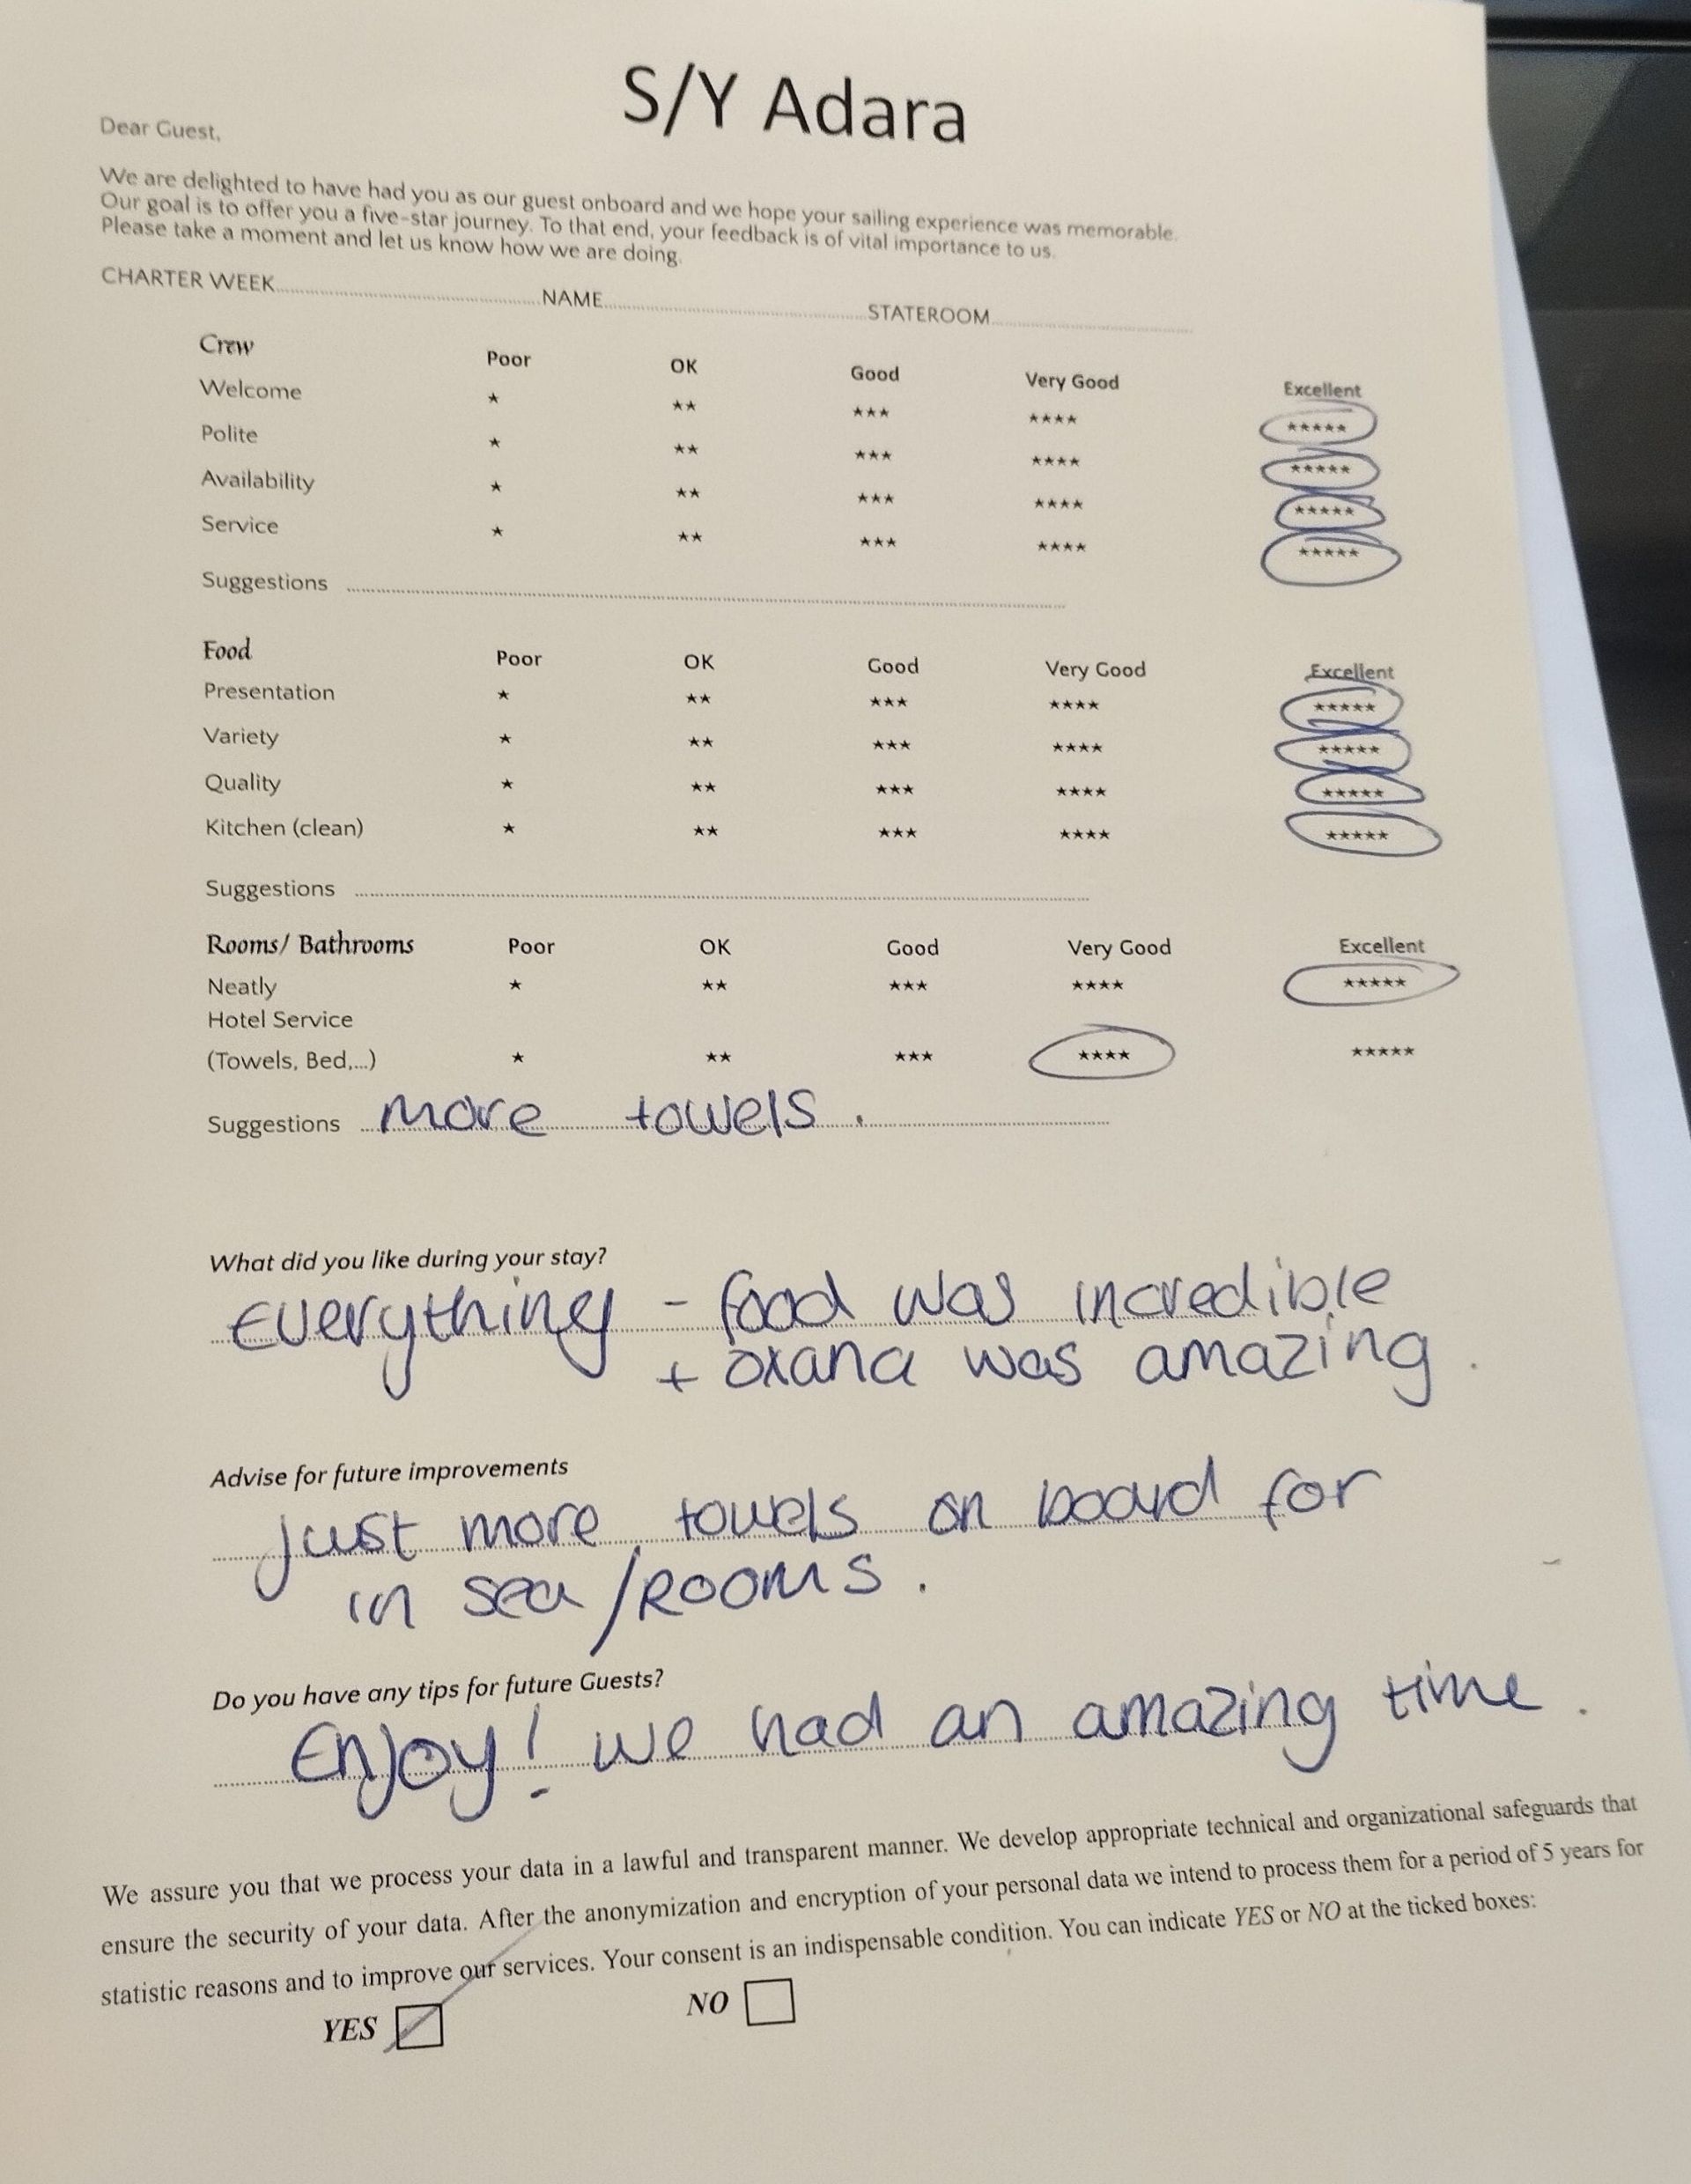 S/Y Adara
Dear Guest,
We are delighted to have had you as our guest onboard and we hope your sailing experience was memorable.
Our goal is to offer you a five-star journey. To that end, your feedback is of vital importance to us.
Please take a moment and let us know how we are doing.
CHARTER WEEK..........NAME..........STATEROOM..........
Crew Poor OK Good Very Good Excellent
Welcome ★ ★★ ★★★ ★★★★ ★★★★★
Polite ★ ★★ ★★★ ★★★★ ★★★★★
Availability ★ ★★ ★★★ ★★★★ ★★★★★
Service ★ ★★ ★★★ ★★★★ ★★★★★
Suggestions ..........
Food Poor OK Good Very Good Excellent
Presentation ★ ★★ ★★★ ★★★★ ★★★★★
Variety ★ ★★ ★★★ ★★★★ ★★★★★
Quality ★ ★★ ★★★ ★★★★ ★★★★★
Kitchen (clean) ★ ★★ ★★★ ★★★★ ★★★★★
Suggestions ..........
Rooms/ Bathrooms Poor OK Good Very Good Excellent
Neatly ★ ★★ ★★★ ★★★★ ★★★★★
Hotel Service
(Towels, Bed,...) ★ ★★ ★★★ ★★★★ ★★★★★
Suggestions more towels.
What did you like during your stay?
Everything - food was incredible
+ oxana was amazing.
Advise for future improvements
just more towels on board for
in sea/rooms.
Do you have any tips for future Guests?
Enjoy! we had an amazing time.
We assure you that we process your data in a lawful and transparent manner. We develop appropriate technical and organizational safeguards that
ensure the security of your data. After the anonymization and encryption of your personal data we intend to process them for a period of 5 years for
statistic reasons and to improve our services. Your consent is an indispensable condition. You can indicate YES or NO at the ticked boxes:
YES NO